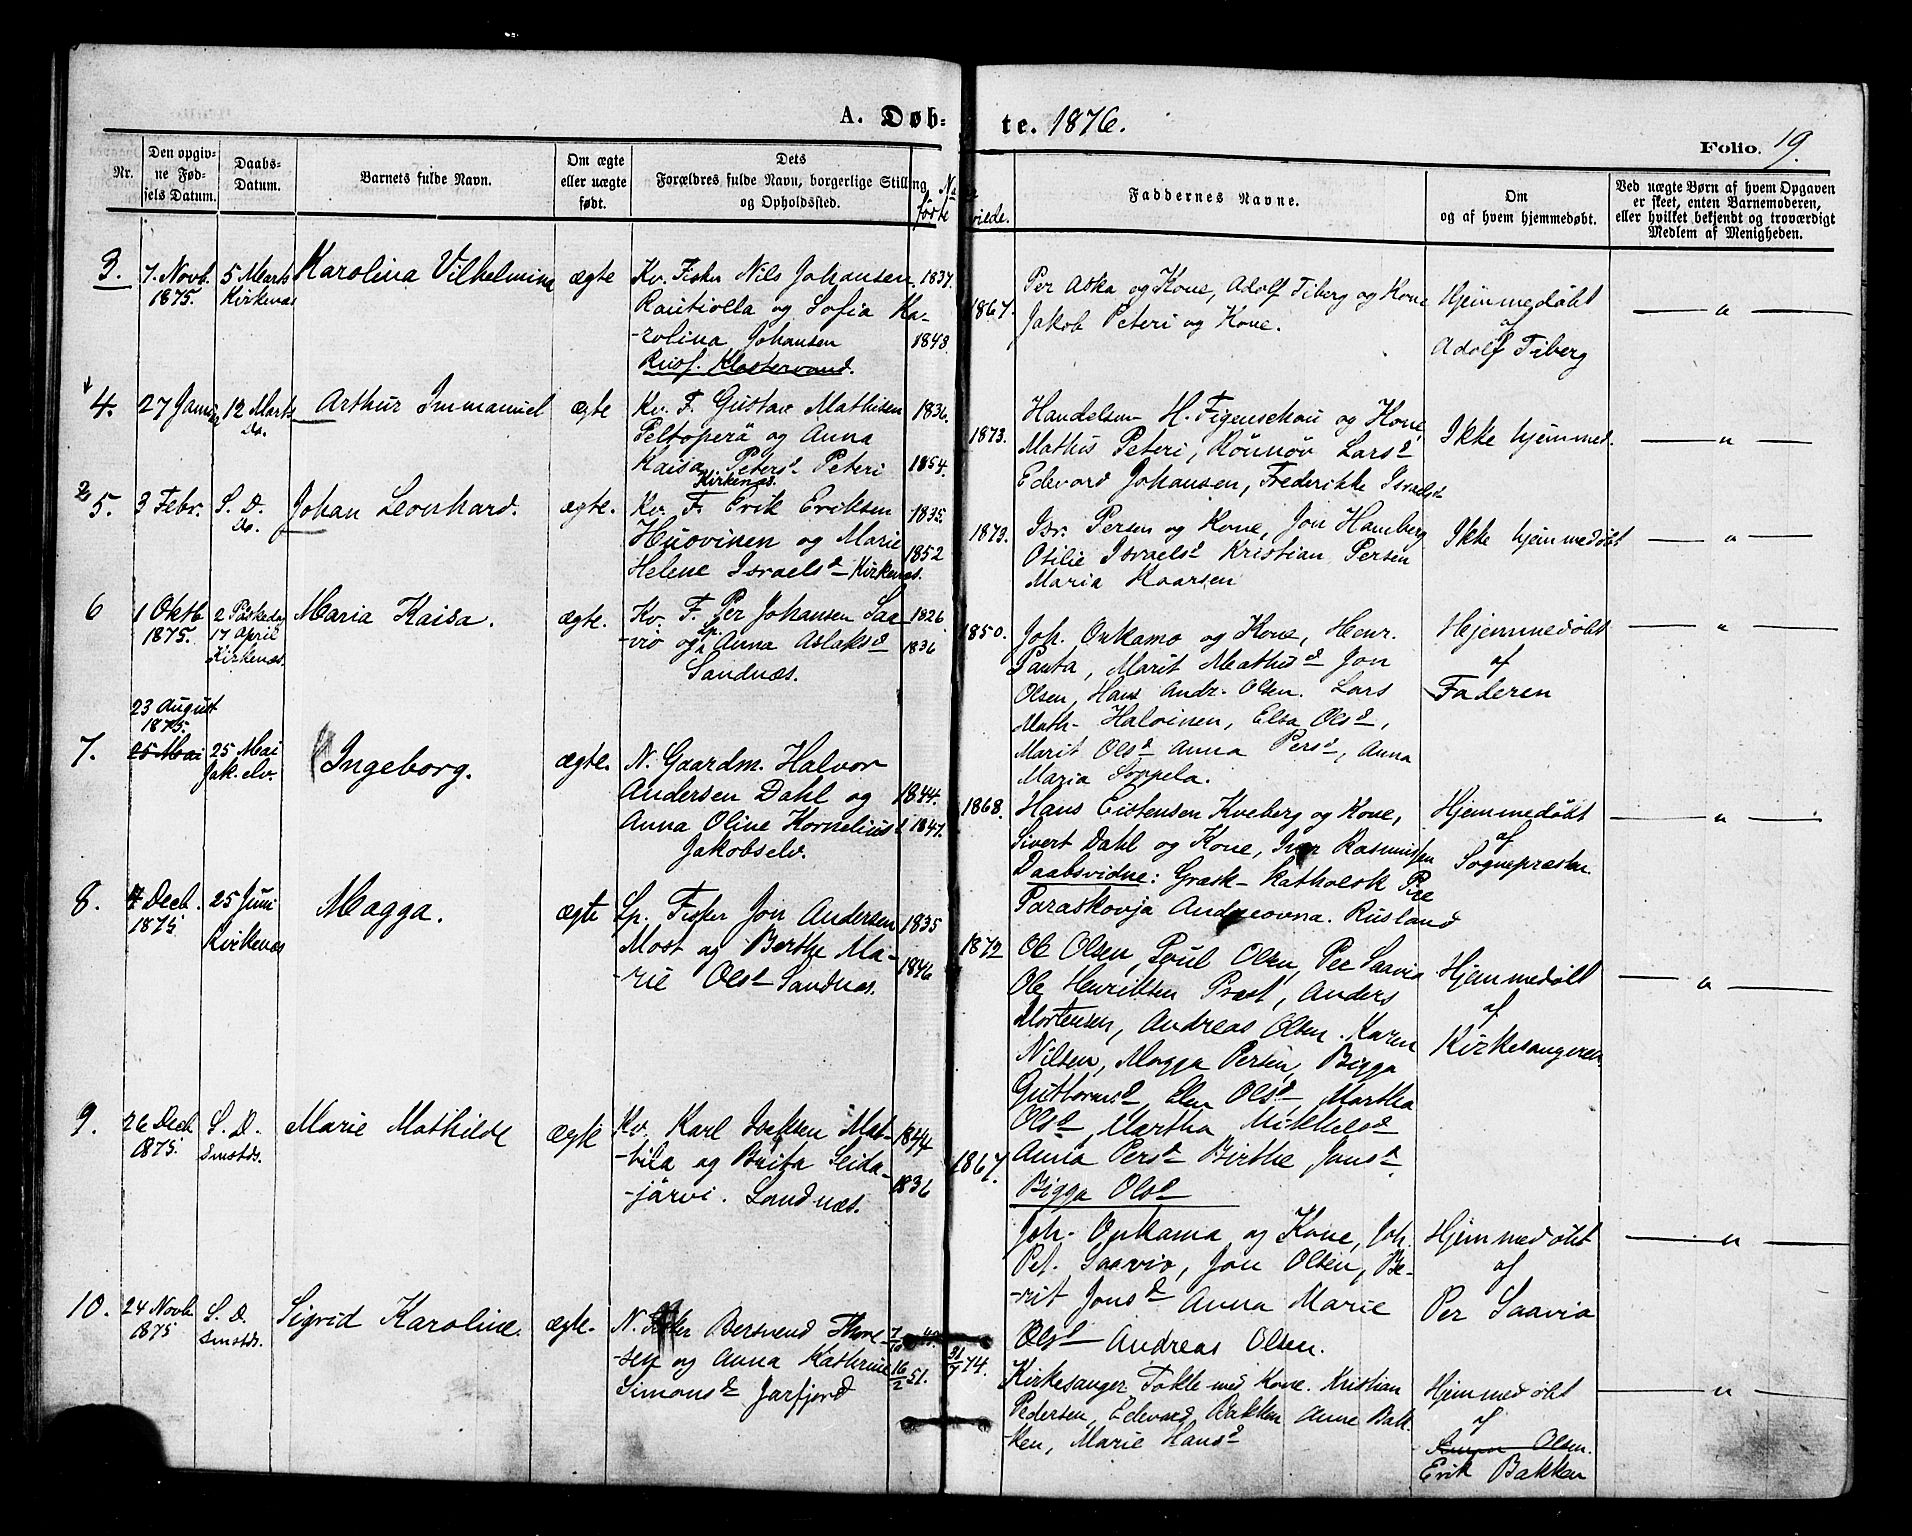 A. Døb-
te. 1876.
Folio. 19.
Nr.
Den opgiv-
ne Fød-
sels Datum.
Daabs-
Datum.
Barnets fulde Navn.
Om ægte
eller uægte
født.
Dets
Forældres fulde Navn, borgerlige Stilling
og Opholdssted.
Faddernes Navne.
Om
og af hvem hjemmedøbt.
Ved uægte Børn af hvem Opgaven
er skeet, enten Barnemoderen,
eller hvilket bekjendt og troværdigt
Medlem af Menigheden.
3.
7. Novb.
1875.
5 Marts
Kirkenæs
Karolina Vilhelmina
ægte
Kv. Fisker Nils Johansen
Rautiolla og Sofia Ka-
-rolina Johansen
Rusf. Klostervand.
1837.
1843.
1867.
Per Aska og Kone, Adolf Tiberg og Kone
Jakob Peteri og Kone.
Hjemmedøbt
af
Adolf Tiberg
4.
27 Januar
12 Marts
Ds.
Arthur Immanuel
ægte
Kv. F. Gustav Mathisen
Peltoperä og Anna
Kaisa Petersd Peteri
Kirkenæs.
1836.
1854.
1873.
Handelsm. H. Figenschou og Kone,
Mathis Peteri, Rönnöv Larsd
Edevard Johansen, Frederikke Israelsd
Ikke hjemmed.
5.
3 Febr.
S. D.
Ds.
Johan Leonhard.
ægte.
Kv. F. Erik Eriksen
Huovinen og Marie
Helene Israelsd Kirkenæs.
1835.
1852
1873.
Isr. Persen og Kone, Jon Hamberg
Otilie Israelsd Kristian Persen
Maria Kaarsen
Ikke hjemmedøbt
6
1 Oktb
1875.
2 Paaskedag
17 April
Kirkenæs.
Maria Kaisa.
ægte.
Kv. F. Per Johansen Saa-
-vio og Lp. Anna Aslaksd
Sandnæs.
1826.
1836
1850.
Joh. Onkamo og Kone, Henr.
Panta, Marit Mathisd Jon
Olsen, Hans Andr. Olsen. Lars
Math- Halvinen, Elsa Olsd,
Marit Olsd Anna Persd, Anna
Maria Soppela.
Hjemmedøbt
af
Faderen
7.
23 August
1875.
25 Mai
25 Mai
Jak.elv.
Ingeborg.
ægte.
N. Gaardm. Halvor
Andersen Dahl og
Anna Oline Korneliusd
Jakobselv.
1844.
1847.
1868.
Hans Eistensen Kveberg og Kone,
Sivert Dahl og Kone, Iver Rasmussen
Daabsvidne: Græsk-katholsk Pige
Paraskovja Andreovna. Rusland
Hjemmedøbt
af
Sognepræsten.
8.
4 Decb.
1875
25 Juni
Kirkenæs
Magga.
ægte
Lp. Fisker Jon Andersen
Most og Berthe Ma-
-rie Olsd Sandnæs.
1835
1846
1872
Ole Olsen, Poul Olsen, Per Saavio
Ole Henriksen Præst, Anders
Mortensen, Andreas Olsen. Karen
Nilsen, Magga Persen, Bigga
Guttormsd, Elen Olsd, Martha
Olsd Martha Mikkelsd
Anna Persd Birthe Jonsd
Bigga Olsd
Hjemmedøbt
af
Kirkesangeren
9.
26 Decb
1875.
S. D.
Smstds.
Marie Mathilde
ægte
Kv. Karl Isaksen Mat-
-tila og Brita Seida-
-järvi. Sandnæs.
1844
1836
1867.
Joh. Onkama og Kone, Joh.
Pet. Saavio, Jon Olsen, Be-
-rit Jonsd Anna Marie
Olsd Andreas Olsen.
Hjemmedøbt
af
Per Saavio
10.
24 Novb
1875
S. D.
Smstds.
Sigrid Karoline.
ægte.
N. Bersvend Thore-
-sen og Anna Kathrine
Simonsd Jarfjord
16/2 51.
31/7 74.
Kirkesanger Tokle med Kone. Kristian
Pedersen, Edevard Bakken Anne Bak-
-ken, Marie Hansd
Hjemmedøbt
af
Olsen.
Erik Bakken